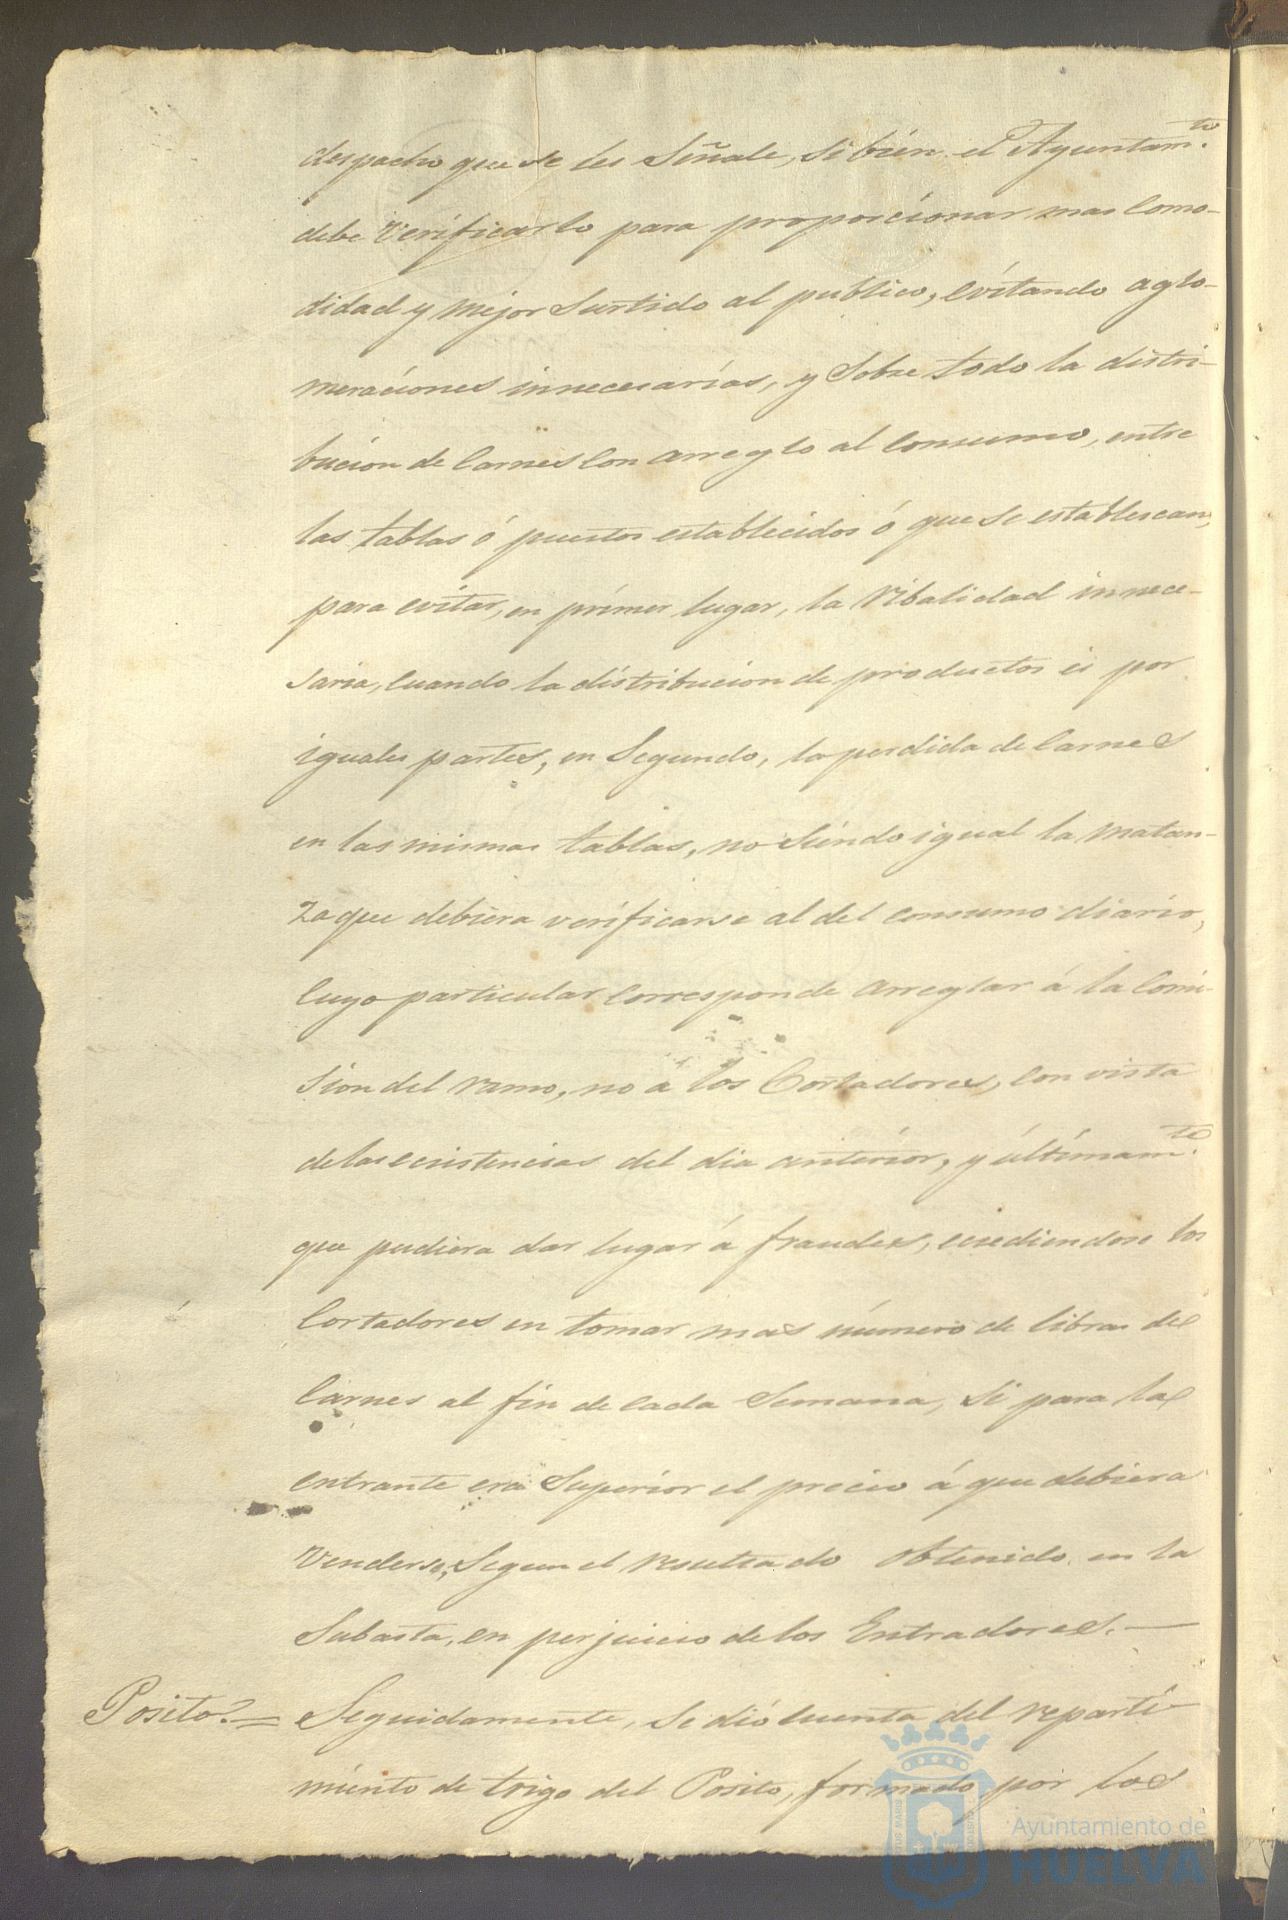 despacho que se les Señale, si bien el Ayuntam.to
debe Verificarlo para proporcionar mas Como-
didad y mejor Surtido al publico, evitando aglo-
meraciones innecesarias, y Sobre todo la distri-
bucion de Carnes Con arreglo al Consumo, entre
las tablas ó puestos establecidos ó que se establescan,
para evitar, en primer lugar, la Ribalidad innece-
saria, Cuando la distribucion de productos es por
iguales partes, en Segundo, la perdida de Carnes
en las mismas tablas, no Siéndo igual la matan-
za que debiera verificarse al del consumo diario,
Cuyo particular Corresponde arreglar á la Comi-
sion del ramo, no á los Cortadores, Con vista
de las ecsistencias del dia anterior, y últimam.te
que pudiera dar lugar á fraudes, ecsediendose los
Cortadores en tomar mas número de libras de
Carnes al fin de Cada Semana, Si para la
entrante era Superior el precio á que debiera
Venderse, Segun el resultado obtenido en la
Subasta, en perjuicio de los Entradores.—
Posito?= Seguidamente, Se dió Cuenta del reparti-
miento de trigo del Posito, formado por los
Ayuntamiento de
HUELVA